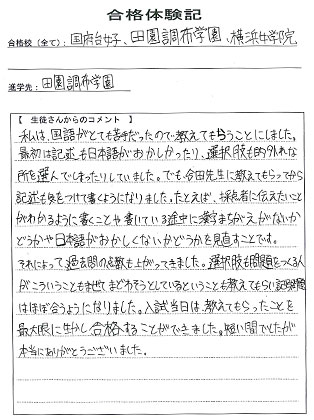 合格体験記
合格校（全て）：国府台女子、田園調布学園、横浜女学院
進学先：田園調布学園
【 生徒さんからのコメント 】
私は、国語がとても苦手だったので教えてもらうことにしました。
最初は記述も日本語がおかしかったり、選択肢も的外れな
所を選んでしまったりしていました。でも、合田先生に教えてもらってから
記述も気をつけて書くようになりました。たとえば、採点者に伝えたいこと
がわかるように書くことや書いている途中に漢字まちがえがないか
どうかや日本語がおかしくないかどうかを見直すことです。
それによって過去問の点数も上がってきました。選択肢も問題をつくる人
がこういうこともまぜてまどろそうとしているということも教えてもらい記号問題
はほぼ合うようになりました。入試当日は、教えてもらったことを
最大限に生かし合格することができました。短い間でしたが
本当にありがとうございました。